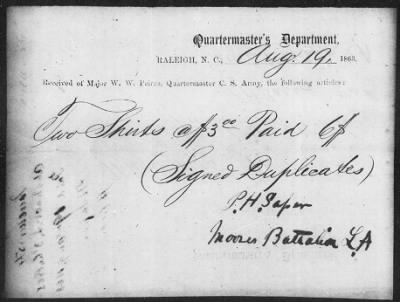 Quartermaster's Department,
RALEIGH, N. C., Aug. 19, 1863.
Received of Major W. W. Peirce, Quartermaster C. S. Army, the following articles:
Two Shirts a $3.00 Paid 6$
(Signed Duplicates)
P. H.
Moores Battalion L A